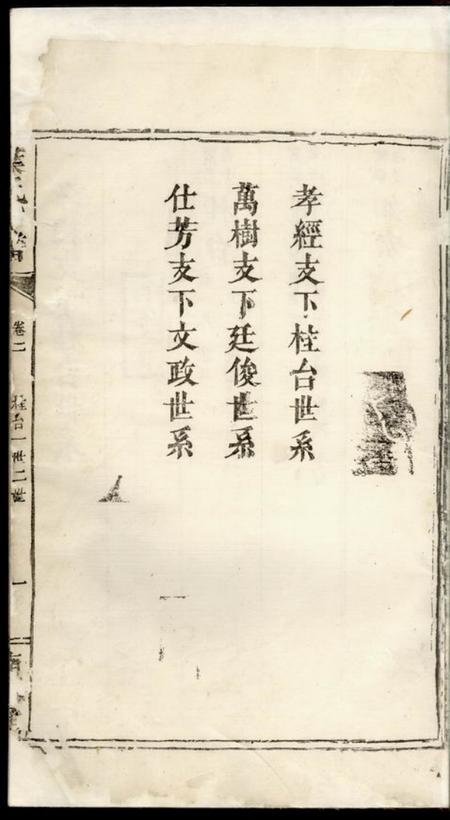 孝經支下桂台世系
萬樹支下廷俊世系
仕芳支下文政世系
卷二
桂台一世二世
一